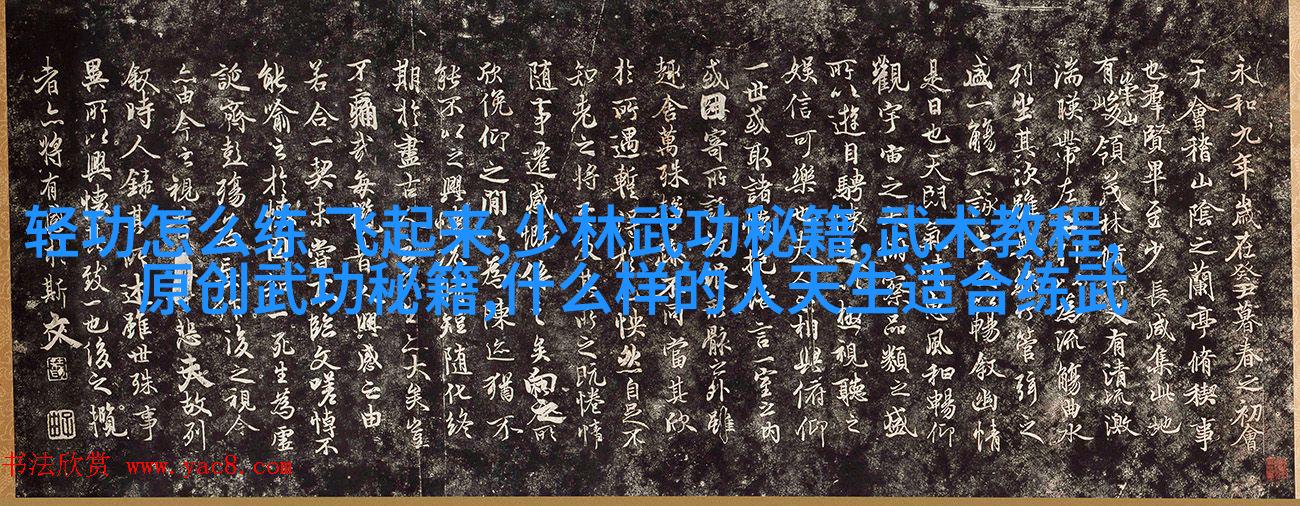 永和九年歲在癸丑暮春之初會
于會稽山陰之蘭亭脩稧事
也羣賢畢至少長咸集此地
有崇山峻領茂林脩又有清流激
湍暎帶左為流觴曲水
列坐其次雖管弦之
盛一觴一詠暢叙幽情
是日也天朗氣風和暢仰
觀宇宙之察品類之盛
所以遊目騁懷極視聽之
娛信可樂也相與俯仰
一世或取諸懷抱言一室之內
或因寄所託骸之外雖
趣舍萬殊不同當其欣
於所遇暫怏然自足不
知老之將所之既惓情
隨事遷感慨係之矣向之所
欣俛仰之閒為陳迹猶不
能不以之興懷短隨化終
期於盡古之大矣豈
不痛哉每昔興感之由
若合一契未嘗不臨文嗟悼不
能喻之於懷一死生為虛
誕齊彭殤為後之視今
亦由今之視昔悲夫故列
叙時人錄其述雖世殊事
異所以興懷致一也後之攬
者亦將有斯文
轻功怎么练 飞起来,少林武功秘籍,武术教程,
原创武功秘籍,什么样的人天生适合练武
书法欣赏 www.yac8.com